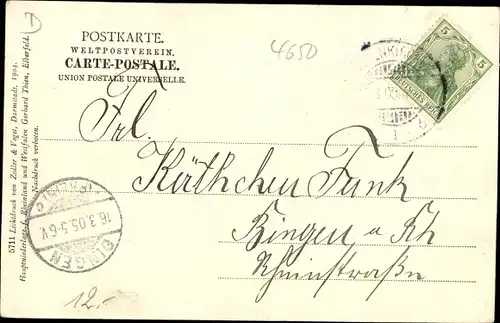 D
POSTKARTE.
WELTPOSTVEREIN.
CARTE-POSTALE.
UNION POSTALE UNIVERSELLE.
4650
5
5
DEUTSCHES REICH
Frl.
Käthchen Funk
Bingen a Rh
Rheinstraße
BINGEN
16.3.05.5-6V.
12.-
5711 Lichtdruck von Zedler & Vogel, Darmstadt. 1904.
Hauptniederlage f. Rheinland und Westfalen Gerhard Thien, Elberfeld.
Nachdruck verboten.